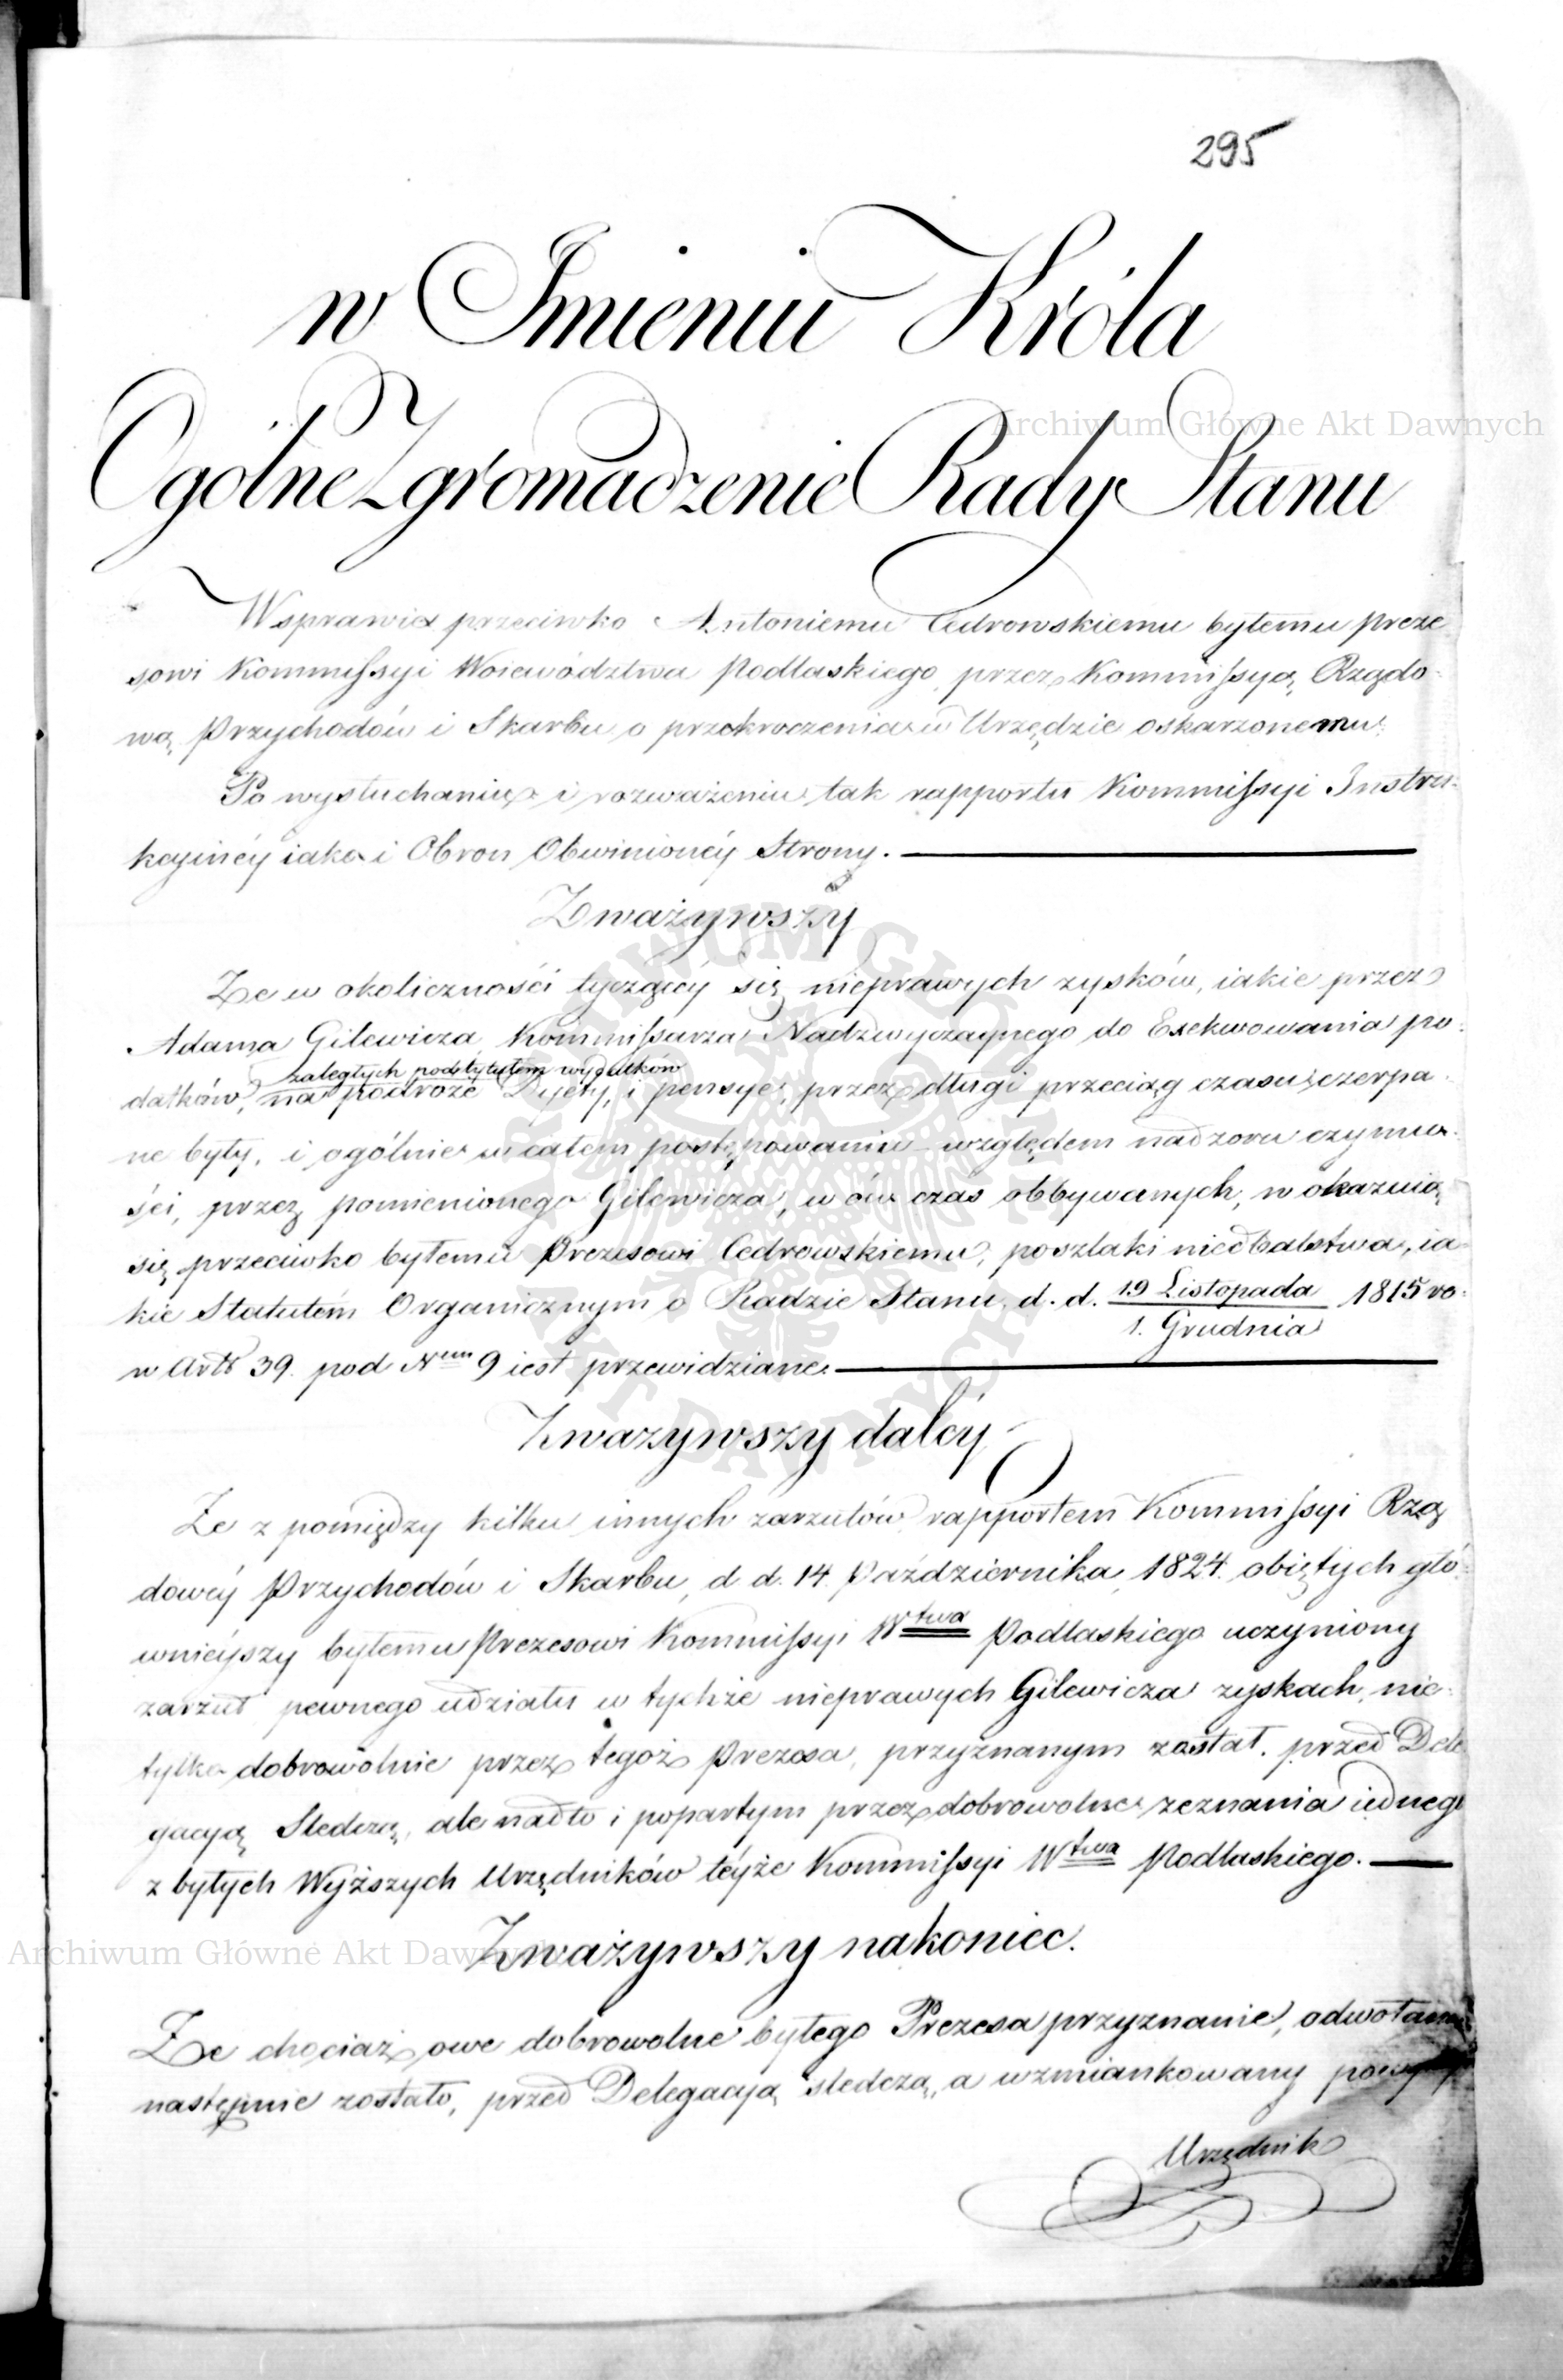 295
w Imieniu Króla
Ogólne Zgromadzenie Rady Stanu
Archiwum Główne Akt Dawnych
W sprawie przeciwko Antoniemu Cedrowskiemu bytemu preze
sowi Kommissyi Woiewództwa Podlaskiego, przez Kommissyą Rządo-
wą Przychodów i Skarbu o przekroczenia w Urzędzie oskarzonemu.
Po wysłuchaniu i rozważeniu tak rapportu Kommissyi Instru-
kcyinéy iako i Obron Obwinionéy Strony.
Zważywszy
Że w okoliczności tyczącéy się nieprawych zysków, iakie przez
Adama Gilewicza Kommissarza Nadzwyczaynego do Exekwowania po-
zaległych pod tytułem wydatków
datków, na podróże Dyety, i pensye, przez długi przeciąg czasu czerpa-
ne były, i ogólnie w całem postępowaniu względem nadzoru czynno-
ści, przez pomienionego Gilewicza, w ów czas obbywanych, wokazuią
się przeciwko byłemu Prezesowi Cedrowskiemu, poszlaki niedbalstwa, ia-
kie Statutem Organicznym o Radzie Stanu d. d. 19 Listopada 1815 ro-
1. Grudnia
w Artt 39. pod Nem 9 iest przewidziane.
Zwazywszy daléy
Że z pomiędzy kilku innych zarzutów rapportem Kommissyi Rzą
dowéy Przychodów i Skarbu, d d. 14. Października 1824. obiętych głó-
wnieyszy byłemu Prezesowi Kommissyi Wtwa Podlaskiego uczyniony
zarzut pewnego udziału w tychże nieprawych Gilewicza zyskach, nie-
tylko dobrowolnie przez tegoż Prezesa, przyznanym został. przed Dele
gacyą Sledczą, ale nadto i popartym przez dobrowolne zeznania iednego
z byłych Wyższych Urzędników téyże Kommissyi Wtwa Podlaskiego.
Archiwum Główne Akt Dawnych
Zważywszy nakoniec.
Że chociaż owe dobrowolne byłego Prezesa przyznanie, odwołane
następnie zostało, przed Delegacyą sledczą, a wzmiankowany
Urzędnik
ARCHIWUM GŁÓWNE AKT DAWNYCH